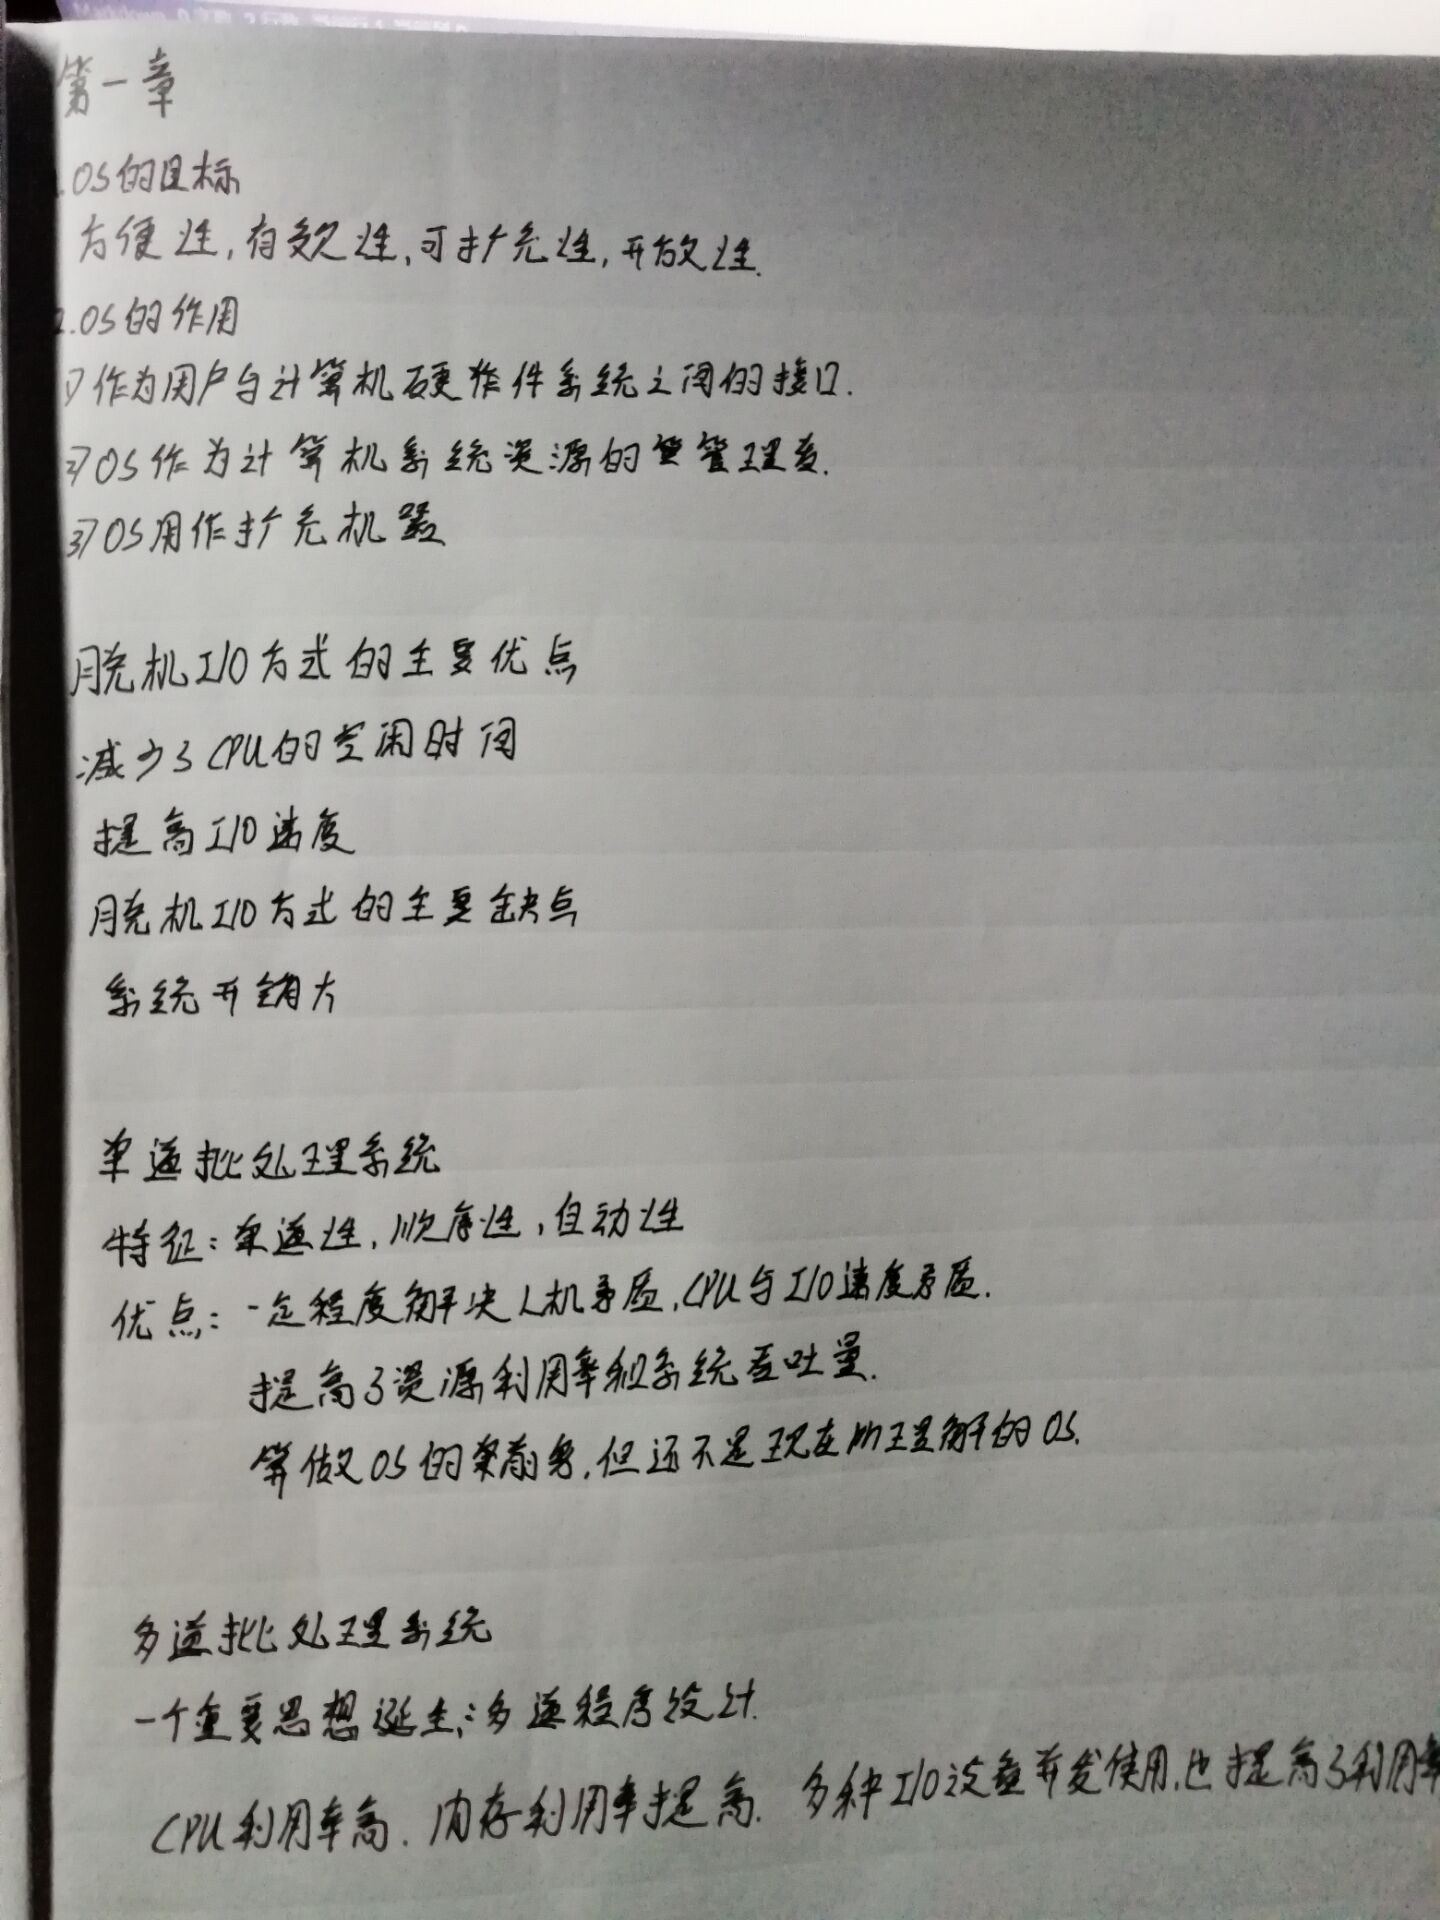 第一章
.OS的目标
方便性,有效性,可扩充性,开放性.
2.OS的作用
1)作为用户与计算机硬件系统之间的接口.
2)OS作为计算机系统资源的管理者.
3)OS用作扩充机器
脱机I/O方式的主要优点
减少了CPU的空闲时间
提高I/O速度
脱机I/O方式的主要缺点
系统开销大
单道批处理系统
特征:单道性,顺序性,自动性
优点:一定程度解决人机矛盾,CPU与I/O速度矛盾.
提高了资源利用率和系统吞吐量.
算做OS的前身,但还不是现在所理解的OS.
多道批处理系统
一个重要思想诞生:多道程序设计.
CPU利用率高.内存利用率提高.多种I/O设备并发使用,也提高了利用率